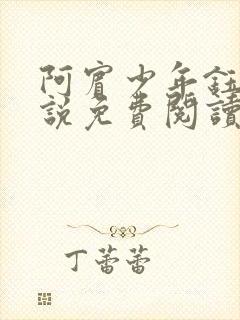 阿賓少年鈺
說免費閱讀
丁蕾蕾